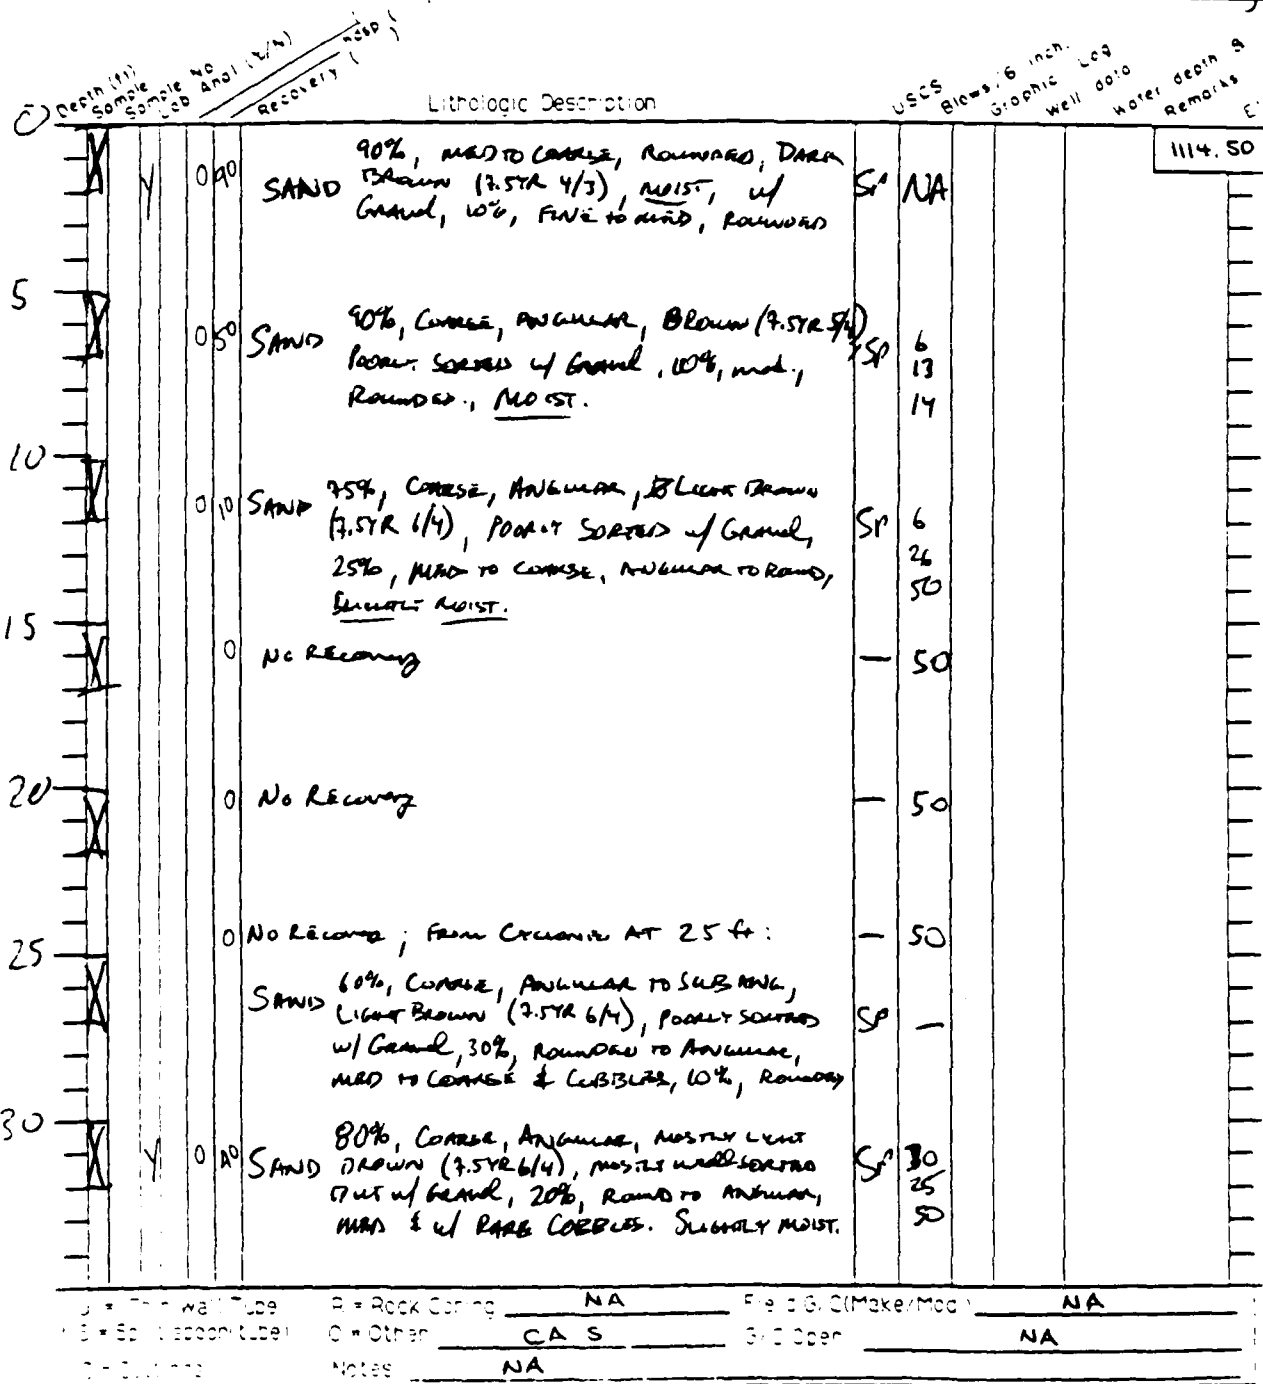 Depth (ft)
Sample
Sample No
Lab Anal (Y/N)
Recovery (
Lithologic Description
USCS
Blows/6 inch.
Graphic Log
Well data
Water depth &
Remarks
0
1114.50
Y 0 90 SAND 90%, MED TO COARSE, ROUNDED, DARK
BROWN (7.5YR 4/3), MOIST, w/
GRAVEL, 10%, FINE TO MED, ROUNDED
SP NA
5
0 50 SAND 90%, COARSE, ANGULAR, BROWN (7.5YR 5/4)
POORLY SORTED w/ GRAVEL, 10%, med.,
ROUNDED., MOIST.
SP 6
13
14
10
0 10 SAND 75%, COARSE, ANGULAR, LIGHT BROWN
(7.5YR 6/4), POORLY SORTED w/ GRAVEL,
25%, MED TO COARSE, ANGULAR TO ROUND,
SLIGHTLY MOIST.
SP 6
26
50
15
0 No RECOVERY — 50
20
0 No RECOVERY — 50
0 No RECOVERY; FROM CYCLONE AT 25 ft: — 50
25
SAND 60%, COARSE, ANGULAR TO SUBANG,
LIGHT BROWN (7.5YR 6/4), POORLY SORTED
w/ GRAVEL, 30%, ROUNDED TO ANGULAR,
MED TO COARSE & COBBLES, 10%, ROUNDED
SP —
30
Y 0 40 SAND 80%, COARSE, ANGULAR, MOSTLY LIGHT
BROWN (7.5YR 6/4), MOSTLY WELL SORTED
BUT w/ GRAVEL, 20%, ROUND TO ANGULAR,
MED & w/ RARE COBBLES. SLIGHTLY MOIST.
SP 30
25
50
Thin Wall Tube R = Rock Coring NA Field G/C(Make/Mod) NA
S = Split spoon(tube) O = Other CAS G/C Oper NA
Notes NA